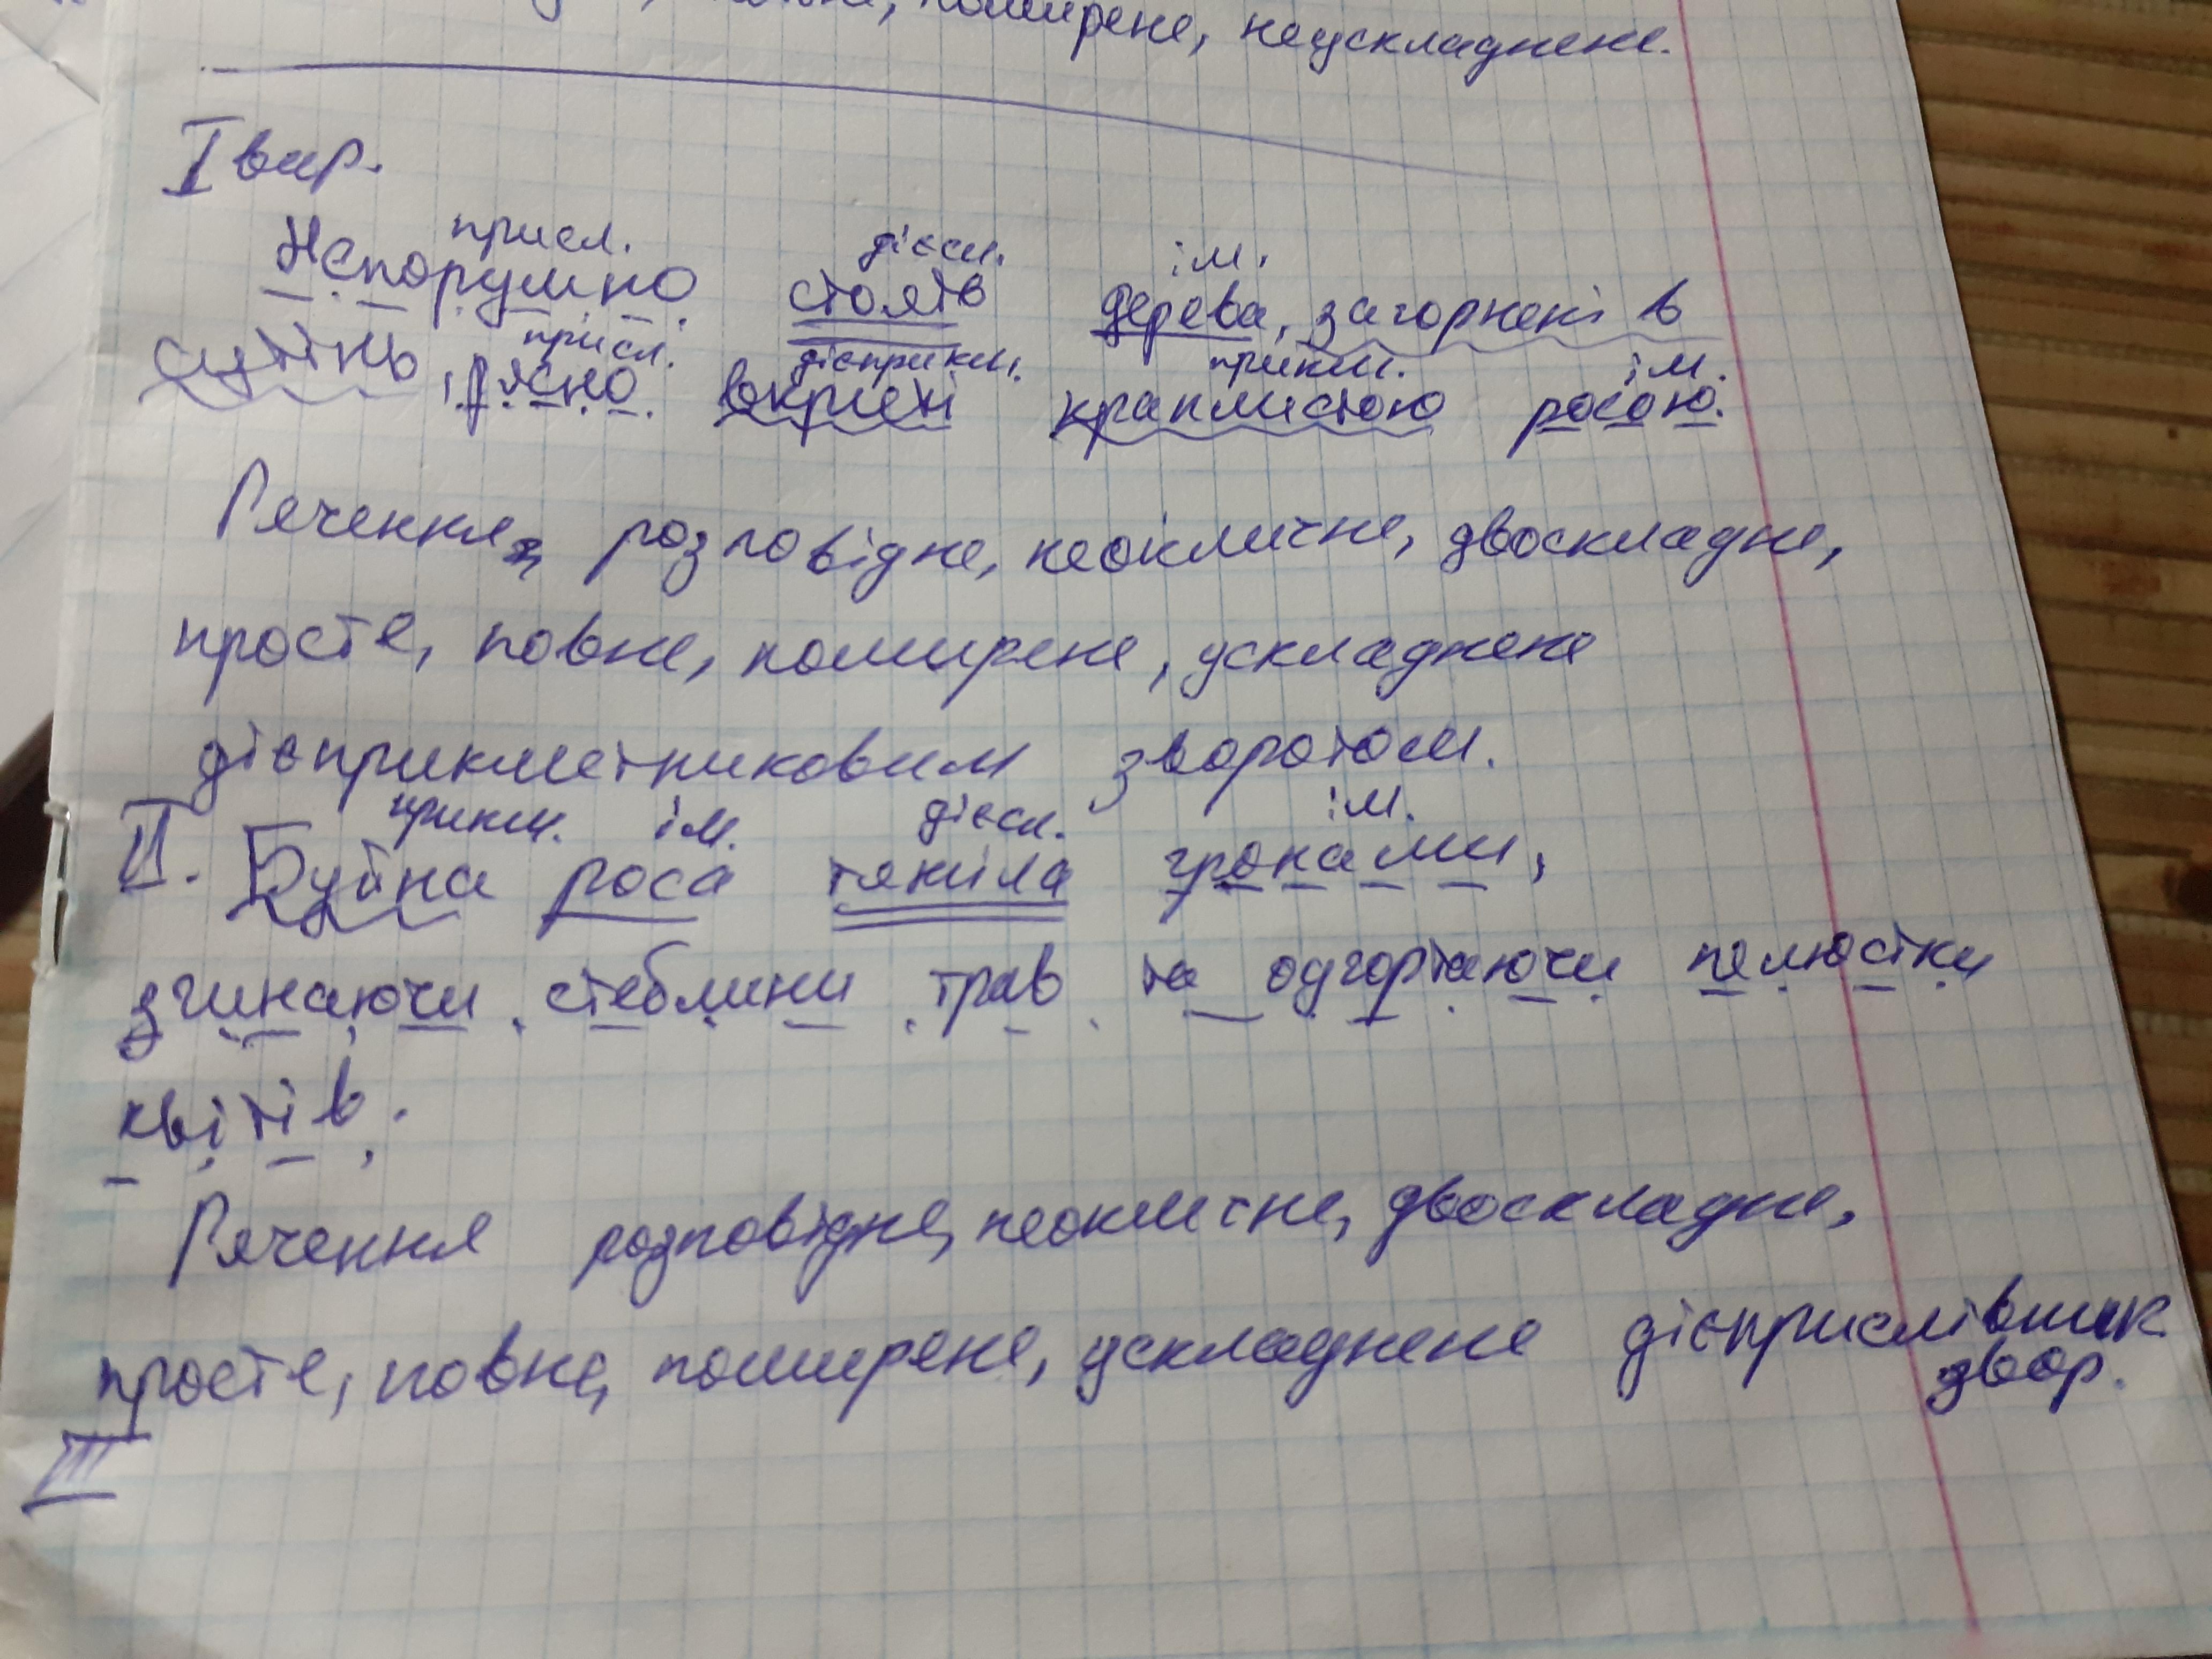 поширене, неускладнене.
I вар.
присл. дієсл. ім.
Непорушно стоять дерева, загорнені в
присл. дієприкм. прикм. ім.
сутінь, рясно вкриті краплистою росою.
Речення розповідне, неоклична, двоскладне,
просте, повне, поширене, ускладнене
дієприкметниковим зворотом.
прикм. ім. дієсл. ім.
II. Буйна роса тяжіла гронами,
згинаючи стеблини трав та одгортаючи пелюстки
квітів.
Речення розповідне, неоклична, двоскладне,
просте, повне, поширене, ускладнене дієприслівник
звор.
III